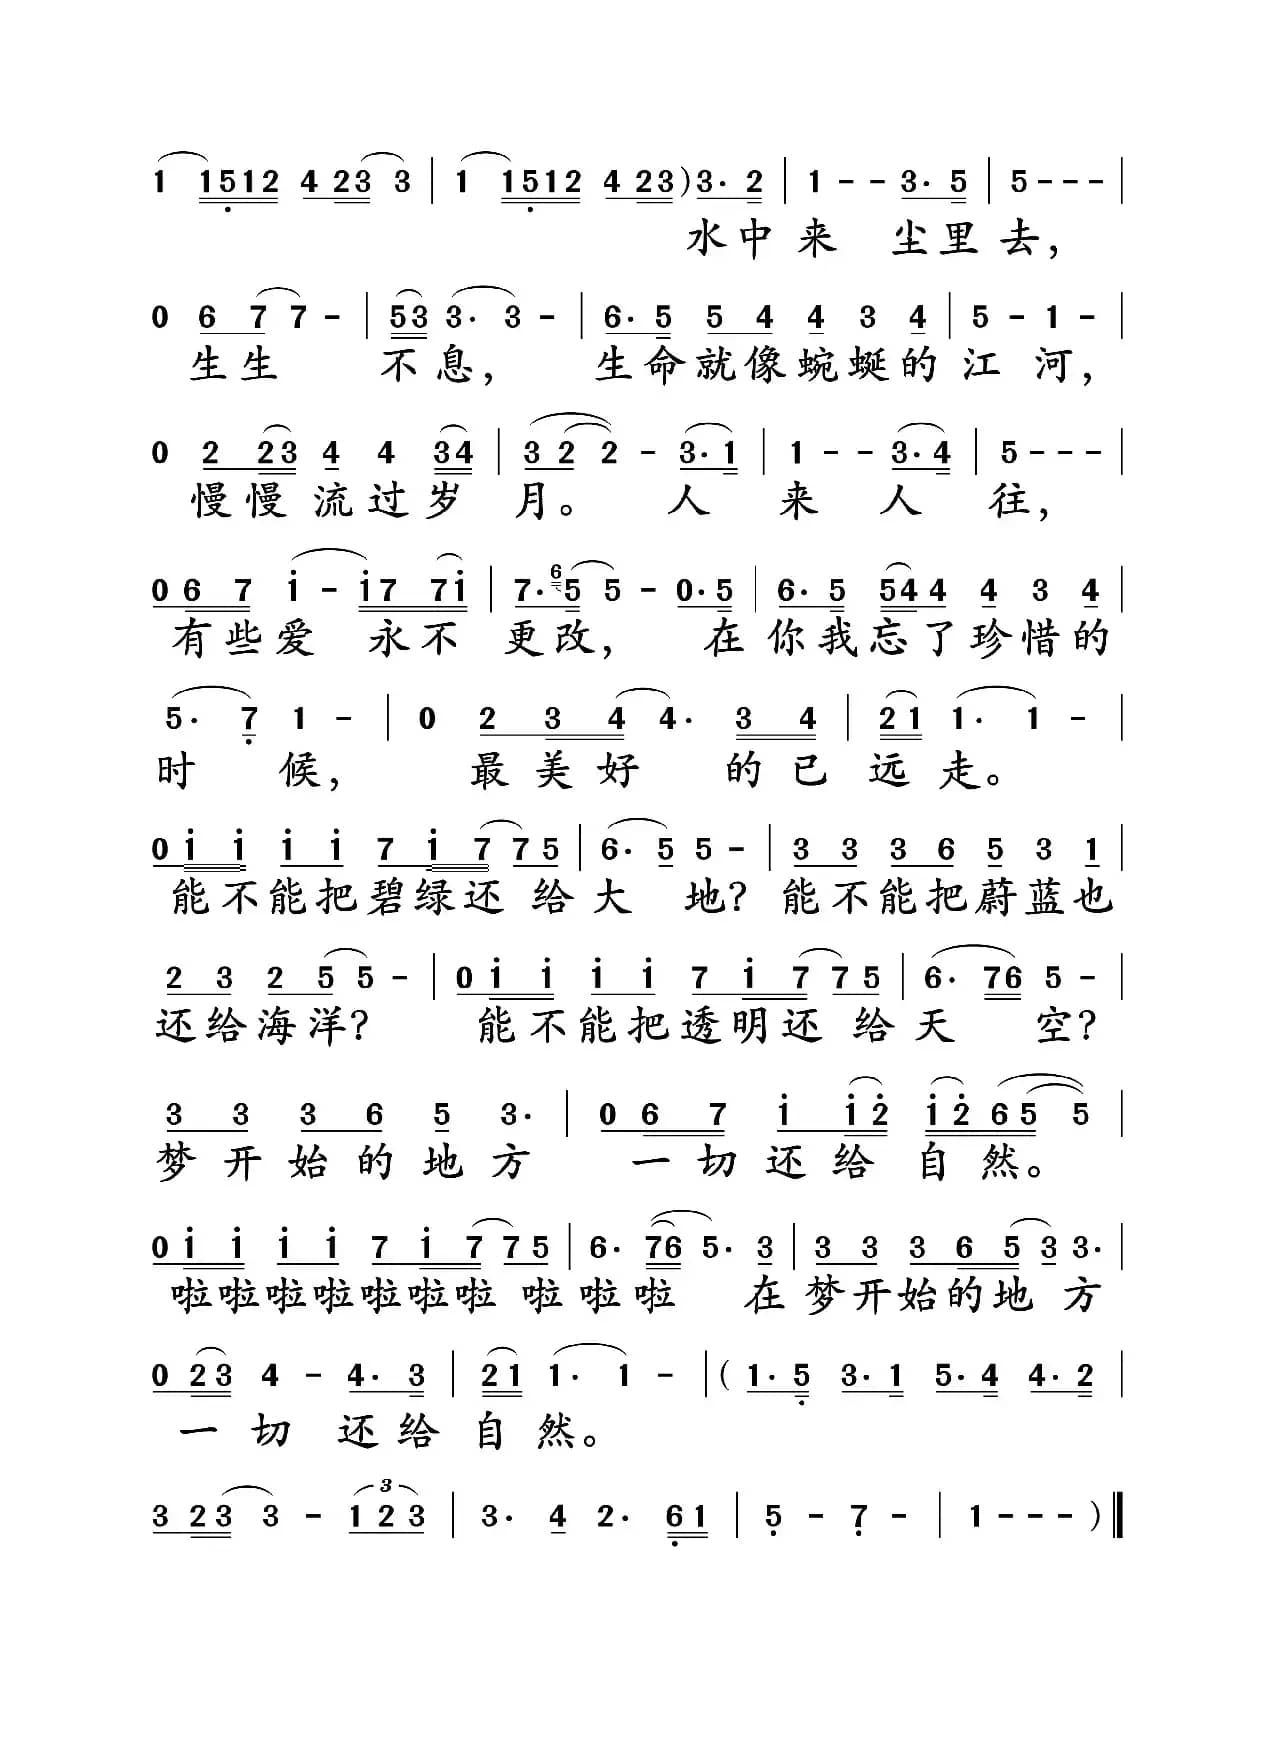 1 1512 4 23 3 | 1 1512 4 23 ) 3· 2 | 1 - - 3· 5 | 5 - - - |
水中来 尘里去，
0 6 7 7 - | 53 3· 3 - | 6· 5 5 4 4 3 4 | 5 - 1 - |
生生 不息， 生命就像蜿蜒的江河，
0 2 23 4 4 34 | 3 2 2 - 3· 1 | 1 - - 3· 4 | 5 - - - |
慢慢流过岁月。 人来人往，
0 6 7 i - i7 7i | 7· 6 5 5 - 0· 5 | 6· 5 54 4 4 3 4 |
有些爱 永不 更改， 在你我忘了珍惜的
5· 7 1 - | 0 2 3 4 4· 3 4 | 21 1· 1 - |
时 候， 最美好 的已远走。
0 i i i i 7 i 7 7 5 | 6· 5 5 - | 3 3 3 6 5 3 1 |
能不能把碧绿还 给大 地？能不能把蔚蓝也
2 3 2 5 5 - | 0 i i i i 7 i 7 7 5 | 6· 76 5 - |
还给海洋？ 能不能把透明还 给天 空？
3 3 3 6 5 3· | 0 6 7 i i2 i2 65 5 |
梦开始的地方 一切还给自然。
0 i i i i 7 i 7 7 5 | 6· 76 5· 3 | 3 3 3 6 5 3 3· |
啦啦啦啦啦啦啦 啦啦啦 在梦开始的地方
0 23 4 - 4· 3 | 21 1· 1 - | ( 1· 5 3· 1 5· 4 4· 2 |
一切 还给自然。
3 23 3 - 3 1 2 3 | 3· 4 2· 61 | 5 - 7 - | 1 - - - ) ‖